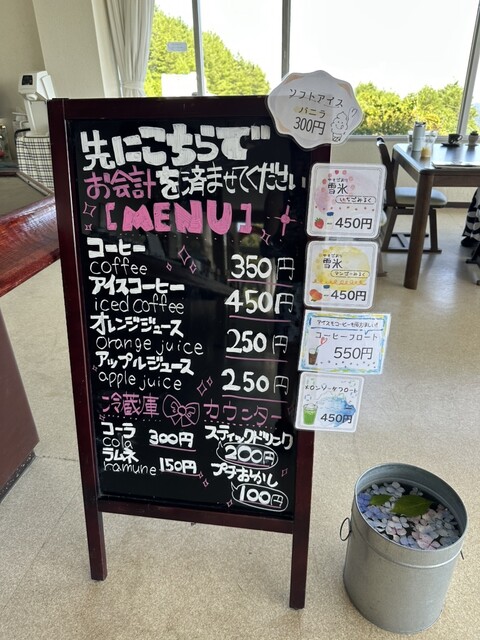 先にこちらで
お会計を済ませてください
[MENU]
コーヒー
coffee
350円
アイスコーヒー
iced coffee
450円
オレンジジュース
orange juice
250円
アップルジュース
apple juice
250円
冷蔵庫
カウンター
コーラ
cola
300円
ラムネ
ramune
150円
スティックドリンク
200円
プチおかし
100円
ソフトアイス
バニラ
300円
雪氷
いちごみるく
450円
雪氷
マンゴーみるく
450円
コーヒーフロート
550円
メロンソーダフロート
450円